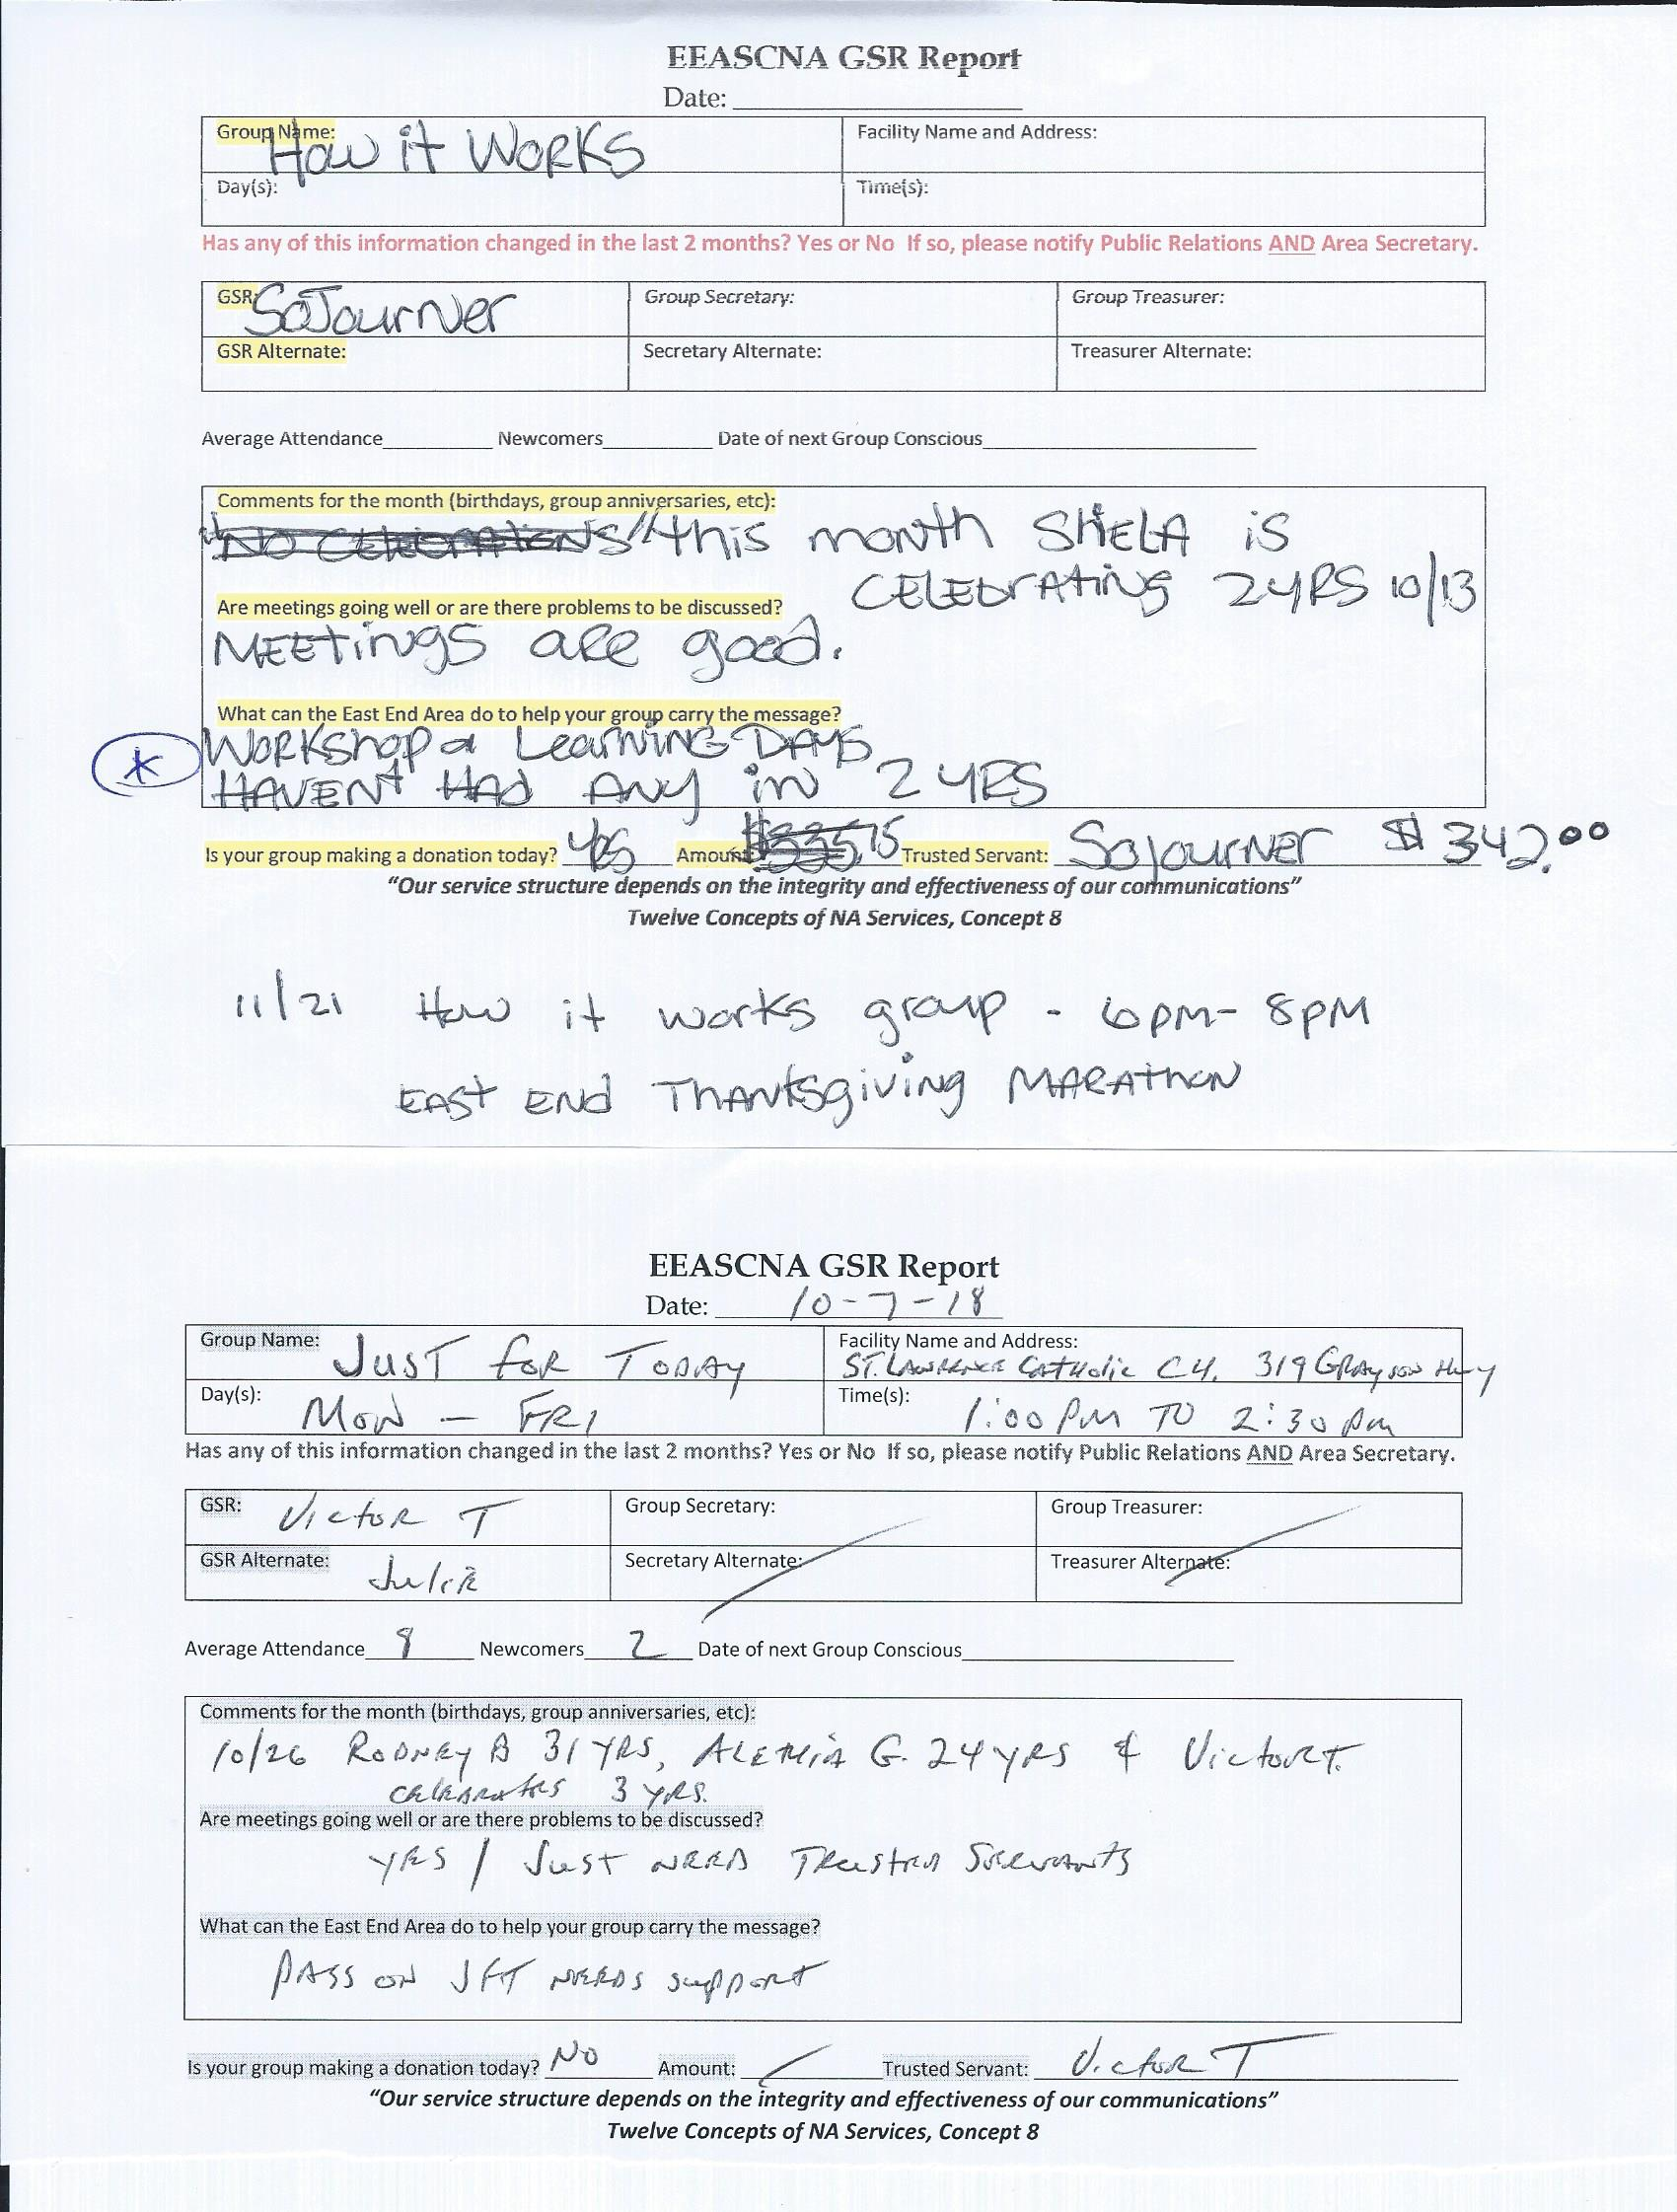 EEASCNA GSR Report
Date:
Group Name: How it WORKS
Facility Name and Address:
Day(s):
Time(s):
Has any of this information changed in the last 2 months? Yes or No If so, please notify Public Relations AND Area Secretary.
GSR: SoJourner
Group Secretary:
Group Treasurer:
GSR Alternate:
Secretary Alternate:
Treasurer Alternate:
Average Attendance Newcomers Date of next Group Conscious
Comments for the month (birthdays, group anniversaries, etc):
No Celebrations this month SHELA is
CELEbrAting 2YRS 10/13
Are meetings going well or are there problems to be discussed?
MEEtings are good.
What can the East End Area do to help your group carry the message?
* WORKshop & LearNING DAYS
HAVENt HAd ANy in 2 YRS
Is your group making a donation today? Yes Amount: Trusted Servant: Sojourner $342.00
“Our service structure depends on the integrity and effectiveness of our communications”
Twelve Concepts of NA Services, Concept 8
11/21 How it works group - 6pm- 8pM
EASt ENd ThANksgiving MARAthoN
EEASCNA GSR Report
Date: 10-7-18
Group Name: JUST foR TODAY
Facility Name and Address:
ST. LAWRENCE CATHOLIC CH. 319 GRAYSON Hwy
Day(s): MoN — FRI
Time(s): 1:00 PM TO 2:30 pm
Has any of this information changed in the last 2 months? Yes or No If so, please notify Public Relations AND Area Secretary.
GSR: VictoR T
Group Secretary:
Group Treasurer:
GSR Alternate: Julie
Secretary Alternate:
Treasurer Alternate:
Average Attendance 8 Newcomers 2 Date of next Group Conscious
Comments for the month (birthdays, group anniversaries, etc):
10/26 RODNEY B 31 YRS, ALETHIA G. 24 YRS & Victor T.
celebrates 3 YRS.
Are meetings going well or are there problems to be discussed?
YES / JUST NEED TRUSTED SERVANTS
What can the East End Area do to help your group carry the message?
PASS ON JFT NEEDS support
Is your group making a donation today? No Amount: Trusted Servant: VictoR T
“Our service structure depends on the integrity and effectiveness of our communications”
Twelve Concepts of NA Services, Concept 8